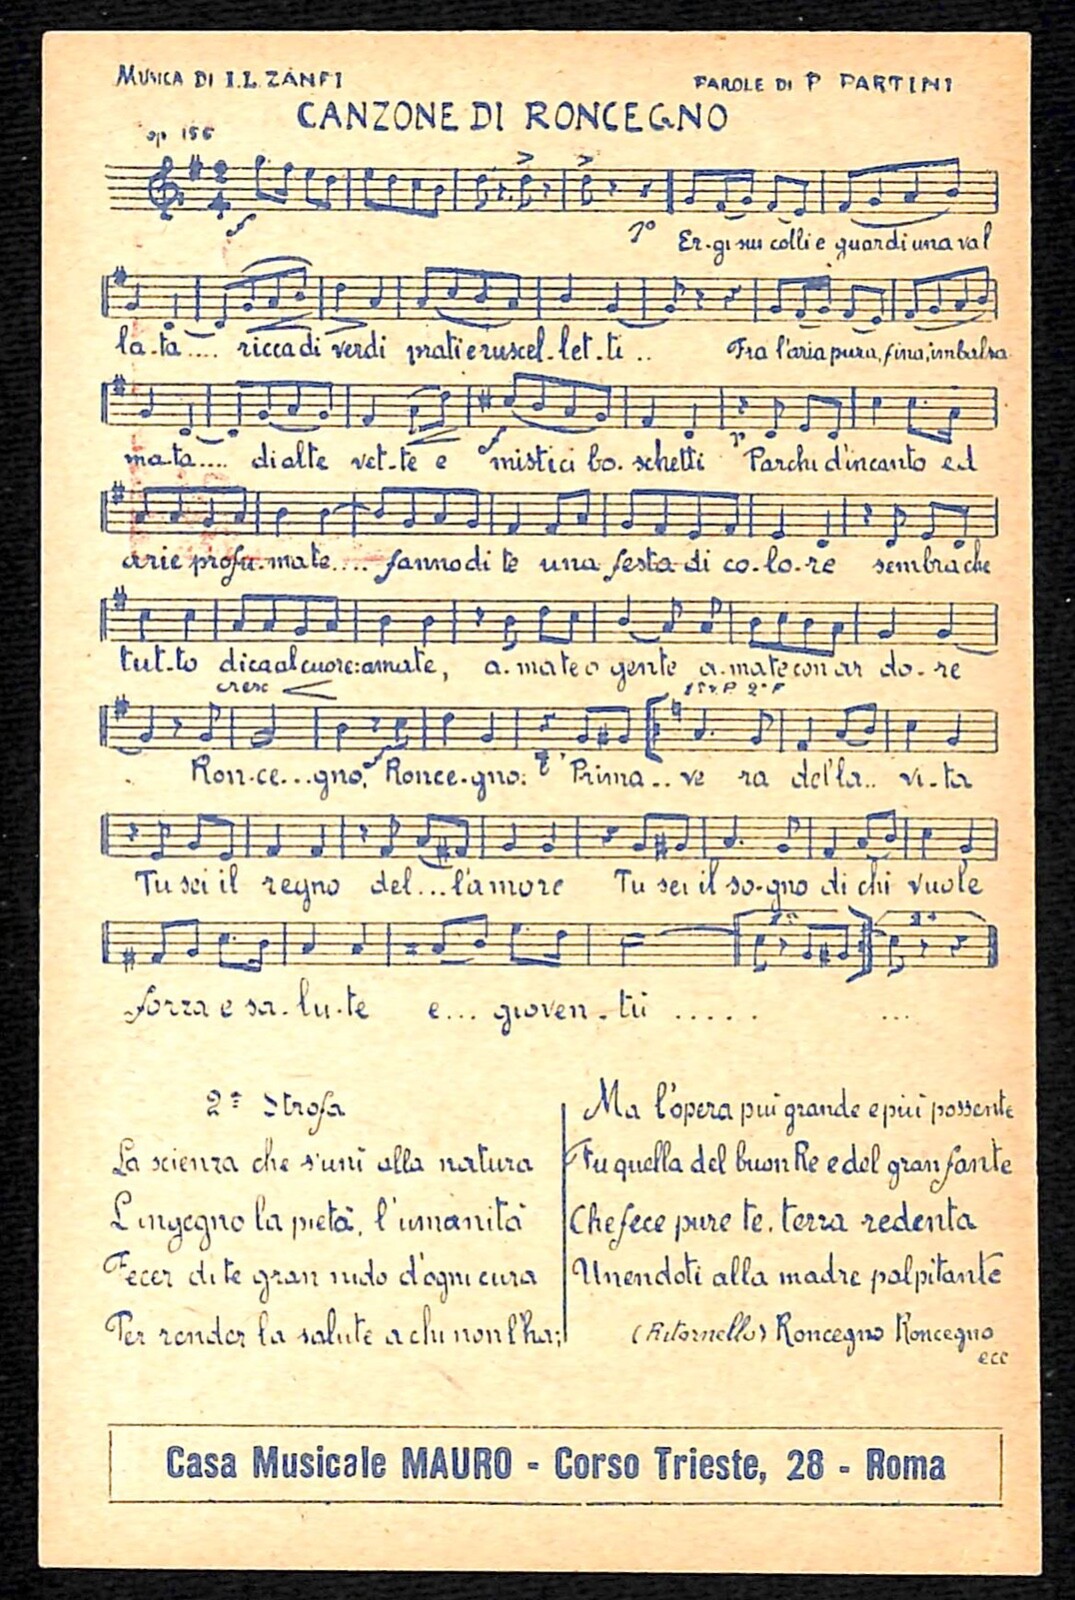 MUSICA DI I.L. ZANFI
PAROLE DI P PARTINI
CANZONE DI RONCEGNO
op 155
1° Er-gi sui colli e guardi una val
la-ta.... ricca di verdi prati e ruscel-let-ti ..
Fra l'aria pura, fina, imbalsa
ma-ta.... di alte vet-te e mistici bo-schetti Parchi d'incanto ed
arie profu-mate.... fanno di te una festa di co-lo-re sembra che
tut-to dica al cuore: amate, a-mate o gente a-mate con ar do-re
cresc
1ª v. P 2ª F
Ron-ce...gno, Ronce-gno: Prima..ve ra del'la.. vi-ta
Tu sei il regno del...l'amore Tu sei il so-gno di chi vuole
forza e sa-lu-te e... gioven-tù ..... ...
2ª Strofa
La scienza che s'unì alla natura
L'ingegno la pietà, l'umanità
Fecer di te gran nido d'ogni cura
Per render la salute a chi non l'ha;
Ma l'opera più grande e più possente
Fu quella del buon Re e del gran fante
Che fece pure te, terra redenta
Unendoti alla madre palpitante
(Ritornello) Roncegno Roncegno
ecc
Casa Musicale MAURO - Corso Trieste, 28 - Roma